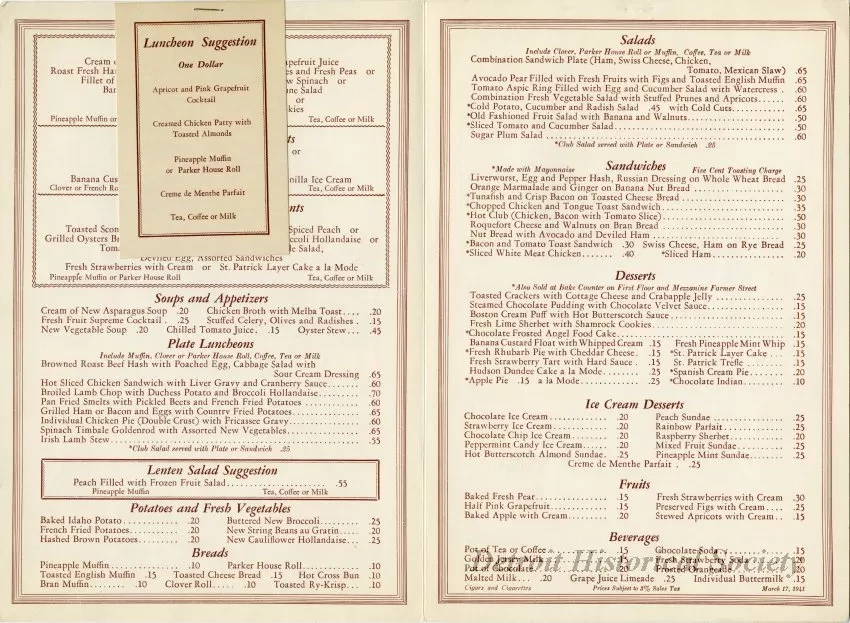 Luncheon Suggestion
One Dollar
Apricot and Pink Grapefruit
Cocktail
Creamed Chicken Patty with
Toasted Almonds
Pineapple Muffin
or Parker House Roll
Creme de Menthe Parfait
Tea, Coffee or Milk
Cream
Grapefruit Juice
Roast Fresh Ha
es and Fresh Peas or
Fillet of
Spinach or
Salad
or
kies
Pineapple Muffin or
Tea, Coffee or Milk
ts
or
Banana Cus
nilla Ice Cream
Clover or French Ro
Tea, Coffee or Milk
nts
Toasted Scon
Spiced Peach or
Grilled Oysters
ccoli Hollandaise or
Tom
Salad,
Deviled Egg, Assorted Sandwiches
Fresh Strawberries with Cream or St. Patrick Layer Cake a la Mode
Pineapple Muffin or Parker House Roll Tea, Coffee or Milk
Soups and Appetizers
Cream of New Asparagus Soup .20 Chicken Broth with Melba Toast.... .20
Fresh Fruit Supreme Cocktail . .25 Stuffed Celery, Olives and Radishes . .15
New Vegetable Soup .20 Chilled Tomato Juice. .15 Oyster Stew... .45
Plate Luncheons
Include Muffin, Clover or Parker House Roll, Coffee, Tea or Milk
Browned Roast Beef Hash with Poached Egg, Cabbage Salad with
Sour Cream Dressing .65
Hot Sliced Chicken Sandwich with Liver Gravy and Cranberry Sauce...... .60
Broiled Lamb Chop with Duchess Potato and Broccoli Hollandaise....... .70
Pan Fried Smelts with Pickled Beets and French Fried Potatoes ........ .60
Grilled Ham or Bacon and Eggs with Country Fried Potatoes........ .65
Individual Chicken Pie (Double Crust) with Fricassee Gravy........ .60
Spinach Timbale Goldenrod with Assorted New Vegetables........ .65
Irish Lamb Stew........ .55
*Club Salad served with Plate or Sandwich .25
Lenten Salad Suggestion
Peach Filled with Frozen Fruit Salad........ .55
Pineapple Muffin Tea, Coffee or Milk
Potatoes and Fresh Vegetables
Baked Idaho Potato........ .20 Buttered New Broccoli........ .25
French Fried Potatoes........ .20 New String Beans au Gratin..... .20
Hashed Brown Potatoes........ .20 New Cauliflower Hollandaise... .25
Breads
Pineapple Muffin........ .10 Parker House Roll........ .10
Toasted English Muffin .15 Toasted Cheese Bread .15 Hot Cross Bun .10
Bran Muffin........ .10 Clover Roll..... .10 Toasted Ry-Krisp... .10
Salads
Include Clover, Parker House Roll or Muffin, Coffee, Tea or Milk
Combination Sandwich Plate (Ham, Swiss Cheese, Chicken,
Tomato, Mexican Slaw) .65
Avocado Pear Filled with Fresh Fruits with Figs and Toasted English Muffin .65
Tomato Aspic Ring Filled with Egg and Cucumber Salad with Watercress . .60
Combination Fresh Vegetable Salad with Stuffed Prunes and Apricots...... .60
*Cold Potato, Cucumber and Radish Salad .45 with Cold Cuts........ .65
*Old Fashioned Fruit Salad with Banana and Walnuts........ .50
*Sliced Tomato and Cucumber Salad........ .50
Sugar Plum Salad ........ .60
*Club Salad served with Plate or Sandwich .25
Sandwiches
*Made with Mayonnaise Five Cent Toasting Charge
Liverwurst, Egg and Pepper Hash, Russian Dressing on Whole Wheat Bread .25
Orange Marmalade and Ginger on Banana Nut Bread ........ .30
*Tunafish and Crisp Bacon on Toasted Cheese Bread ........ .30
*Chopped Chicken and Tongue Toast Sandwich........ .35
*Hot Club (Chicken, Bacon with Tomato Slice)........ .50
Roquefort Cheese and Walnuts on Bran Bread ........ .30
Nut Bread with Avocado and Deviled Ham ........ .30
*Bacon and Tomato Toast Sandwich .30 Swiss Cheese, Ham on Rye Bread .25
*Sliced White Meat Chicken....... .40 *Sliced Ham........ .20
Desserts
*Also Sold at Bake Counter on First Floor and Mezzanine Farmer Street
Toasted Crackers with Cottage Cheese and Crabapple Jelly ........ .25
Steamed Chocolate Pudding with Chocolate Velvet Sauce........ .15
Boston Cream Puff with Hot Butterscotch Sauce ........ .15
Fresh Lime Sherbet with Shamrock Cookies........ .20
*Chocolate Frosted Angel Food Cake........ .15
Banana Custard Float with Whipped Cream .15 Fresh Pineapple Mint Whip .15
*Fresh Rhubarb Pie with Cheddar Cheese. .15 *St. Patrick Layer Cake . . . .15
Fresh Strawberry Tart with Hard Sauce . .15 *St. Patrick Trefle ........ .15
Hudson Dundee Cake a la Mode........ .25 *Spanish Cream Pie........ .20
*Apple Pie .15 a la Mode..... .25 *Chocolate Indian........ .10
Ice Cream Desserts
Chocolate Ice Cream........ .20 Peach Sundae ........ .25
Strawberry Ice Cream........ .20 Rainbow Parfait........ .25
Chocolate Chip Ice Cream ...... .20 Raspberry Sherbet........ .20
Peppermint Candy Ice Cream...... .20 Mixed Fruit Sundae........ .25
Hot Butterscotch Almond Sundae. .25 Pineapple Mint Sundae........ .25
Creme de Menthe Parfait . .25
Fruits
Baked Fresh Pear........ .15 Fresh Strawberries with Cream .30
Half Pink Grapefruit........ .15 Preserved Figs with Cream.... .25
Baked Apple with Cream........ .20 Stewed Apricots with Cream.. .15
Beverages
Pot of Tea or Coffee .15 Chocolate Soda .15
Golden Jersey Milk
Fresh Strawberry
Pot of Chocolate .20 Frosted Orangeade .20
Malted Milk... .20 Grape Juice Limeade .25 Individual Buttermilk . .15
Cigars and Cigarettes Prices Subject to 3% Sales Tax March 17, 1941
Detroit Historical Society